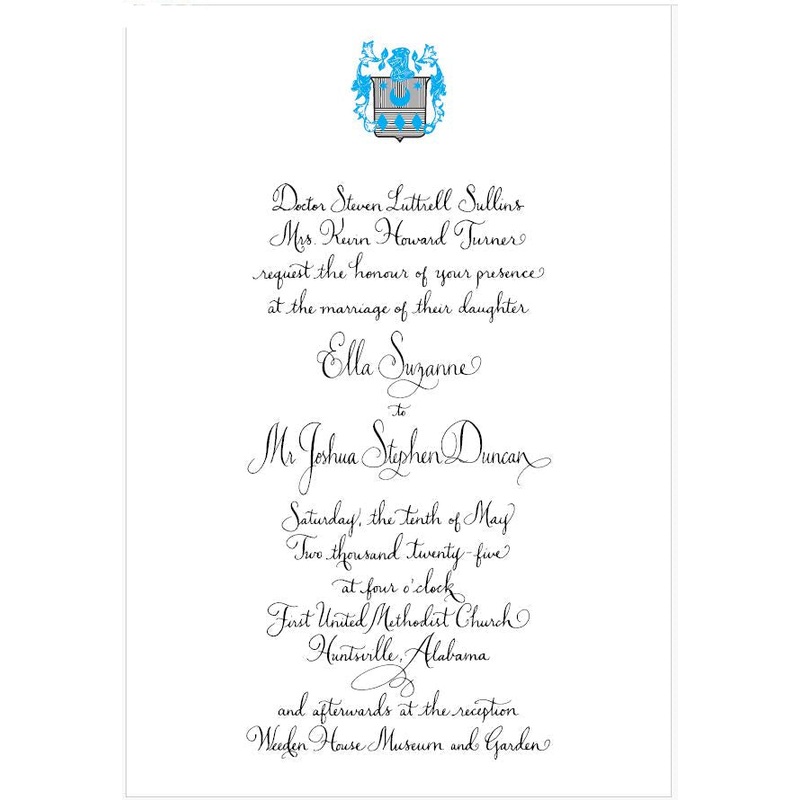 Doctor Steven Luttrell Sullins
Mrs. Kevin Howard Turner
request the honour of your presence
at the marriage of their daughter
Ella Suzanne
to
Mr Joshua Stephen Duncan
Saturday, the tenth of May
Two thousand twenty-five
at four o'clock
First United Methodist Church
Huntsville, Alabama
and afterwards at the reception
Weeden House Museum and Garden